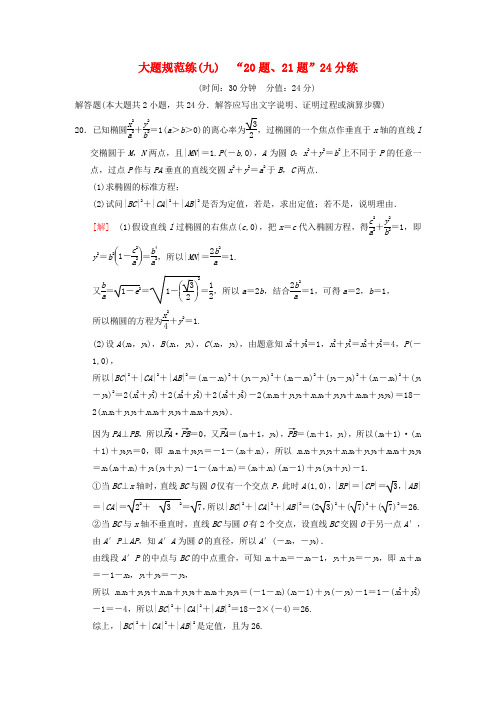 大题规范练(九) “20题、21题”24分练
(时间:30分钟 分值:24分)
解答题(本大题共2小题,共24分.解答应写出文字说明、证明过程或演算步骤)
20.已知椭圆x²/a²+y²/b²=1(a>b>0)的离心率为√3/2,过椭圆的一个焦点作垂直于x轴的直线l
交椭圆于M,N两点,且|MN|=1.P(-b,0),A为圆O:x²+y²=b²上不同于P的任意一
点,过点P作与PA垂直的直线交圆x²+y²=a²于B,C两点.
(1)求椭圆的标准方程;
(2)试问|BC|²+|CA|²+|AB|²是否为定值,若是,求出定值;若不是,说明理由.
[解] (1)假设直线l过椭圆的右焦点(c,0),把x=c代入椭圆方程,得c²/a²+y²/b²=1,即
y²=b²(1-c²/a²)=b⁴/a²,所以|MN|=2b²/a=1.
又b/a=√(1-e²)=√(1-(√3/2)²)=1/2,所以a=2b,结合2b²/a=1,可得a=2,b=1,
所以椭圆的方程为x²/4+y²=1.
(2)设A(x₀,y₀),B(x₁,y₁),C(x₂,y₂),由题意知x₀²+y₀²=1,x₁²+y₁²=x₂²+y₂²=4,P(-
1,0),
所以|BC|²+|CA|²+|AB|²=(x₁-x₂)²+(y₁-y₂)²+(x₂-x₀)²+(y₂-y₀)²+(x₁-x₀)²+(y₁
-y₀)²=2(x₁²+y₁²)+2(x₂²+y₂²)+2(x₀²+y₀²)-2(x₁x₂+y₁y₂+x₁x₀+y₁y₀+x₂x₀+y₂y₀)=18-
2(x₁x₂+y₁y₂+x₁x₀+y₁y₀+x₂x₀+y₂y₀).
因为PA⊥PB,所以PA→·PB→=0,又PA→=(x₀+1,y₀),PB→=(x₁+1,y₁),所以(x₀+1)·(x₁
+1)+y₀y₁=0,即x₀x₁+y₀y₁=-1-(x₀+x₁),所以x₁x₂+y₁y₂+x₁x₀+y₁y₀+x₂x₀+y₂y₀
=x₂(x₀+x₁)+y₂(y₀+y₁)-1-(x₀+x₁)=(x₀+x₁)(x₂-1)+y₂(y₀+y₁)-1.
①当BC⊥x轴时,直线BC与圆O仅有一个交点P,此时A(1,0),|BP|=|CP|=√3,|AB|
=|CA|=√(2²+ √3 ²)=√7,所以|BC|²+|CA|²+|AB|²=(2√3)²+(√7)²+(√7)²=26.
②当BC与x轴不垂直时,直线BC与圆O有2个交点,设直线BC交圆O于另一点A′,
由A′P⊥AP,知A′A为圆O的直径,所以A′(-x₀,-y₀).
由线段A′P的中点与BC的中点重合,可知x₁+x₂=-x₀-1,y₁+y₂=-y₀,即x₁+x₀
=-1-x₂,y₁+y₀=-y₂,
所以x₁x₂+y₁y₂+x₁x₀+y₁y₀+x₂x₀+y₂y₀=(-1-x₂)(x₂-1)+y₂(-y₂)-1=1-(x₂²+y₂²)
-1=-4,所以|BC|²+|CA|²+|AB|²=18-2×(-4)=26.
综上,|BC|²+|CA|²+|AB|²是定值,且为26.